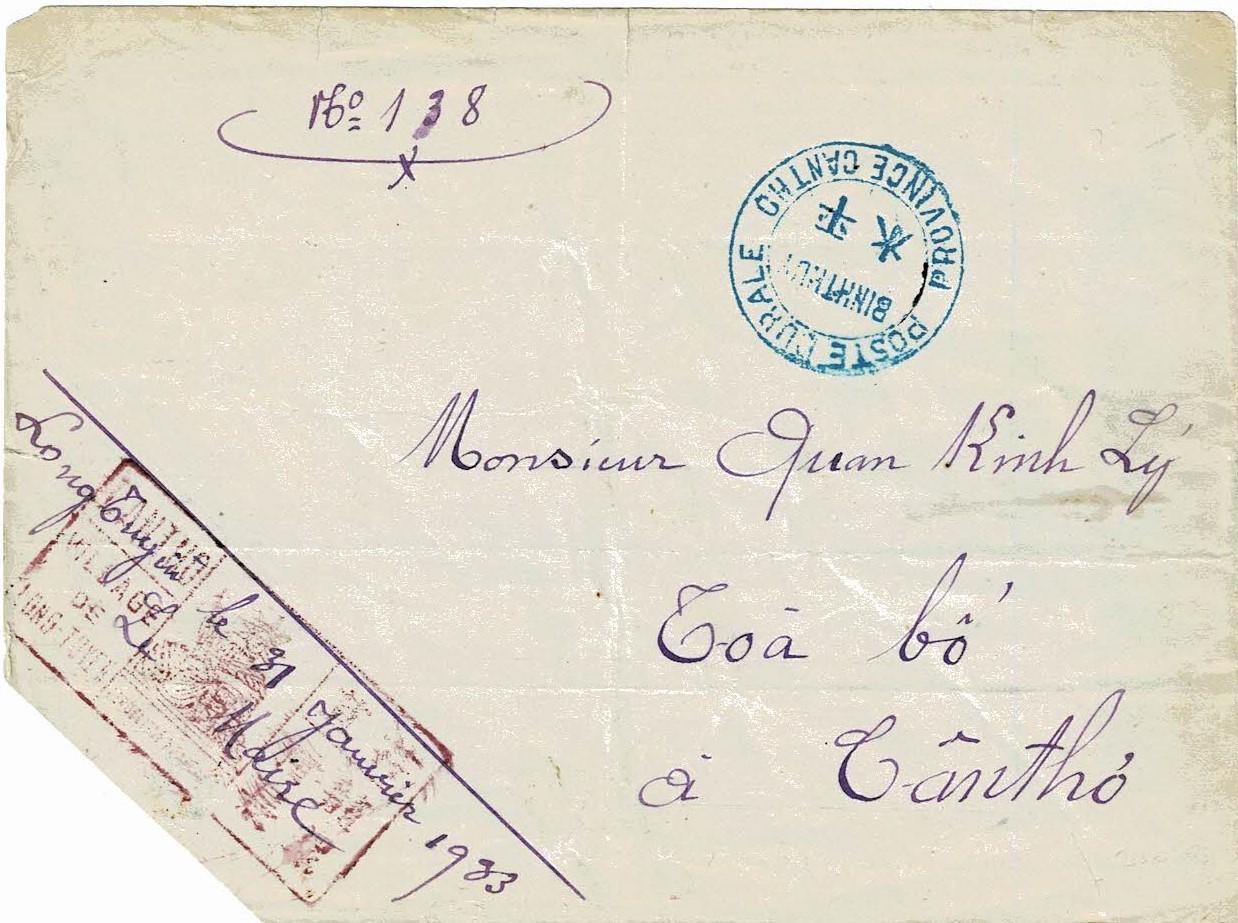 Nº 138
POSTE RURALE PROVINCE CANTHO
BINHTHUY
平水
Monsieur Quan Kinh Lý
Toà bố
à Cânthơ
Long Tuyên le 31 Janvier 1933
Le Maire
CANTHO
VILLAGE
DE
LONG-TUYEN